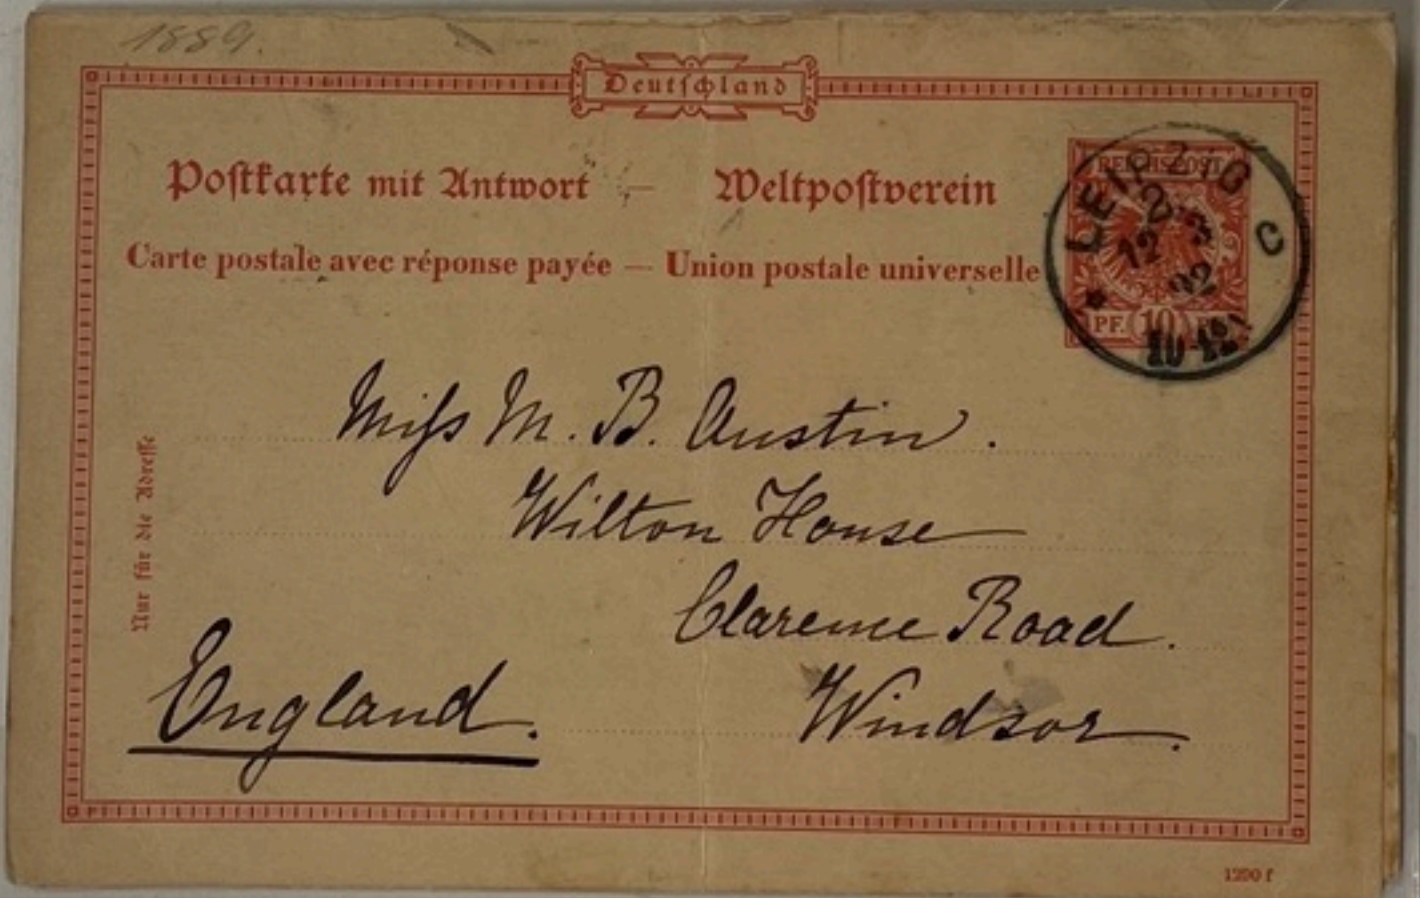 1889.
Deutschland
Postkarte mit Antwort — Weltpostverein
Carte postale avec réponse payée — Union postale universelle
REICHSPOST
PF. 10
LEIPZIG
2
12 3
92
C
Miss M. B. Austin.
Wilton House
Clarence Road.
Windsor.
England.
Nur für die Adresse